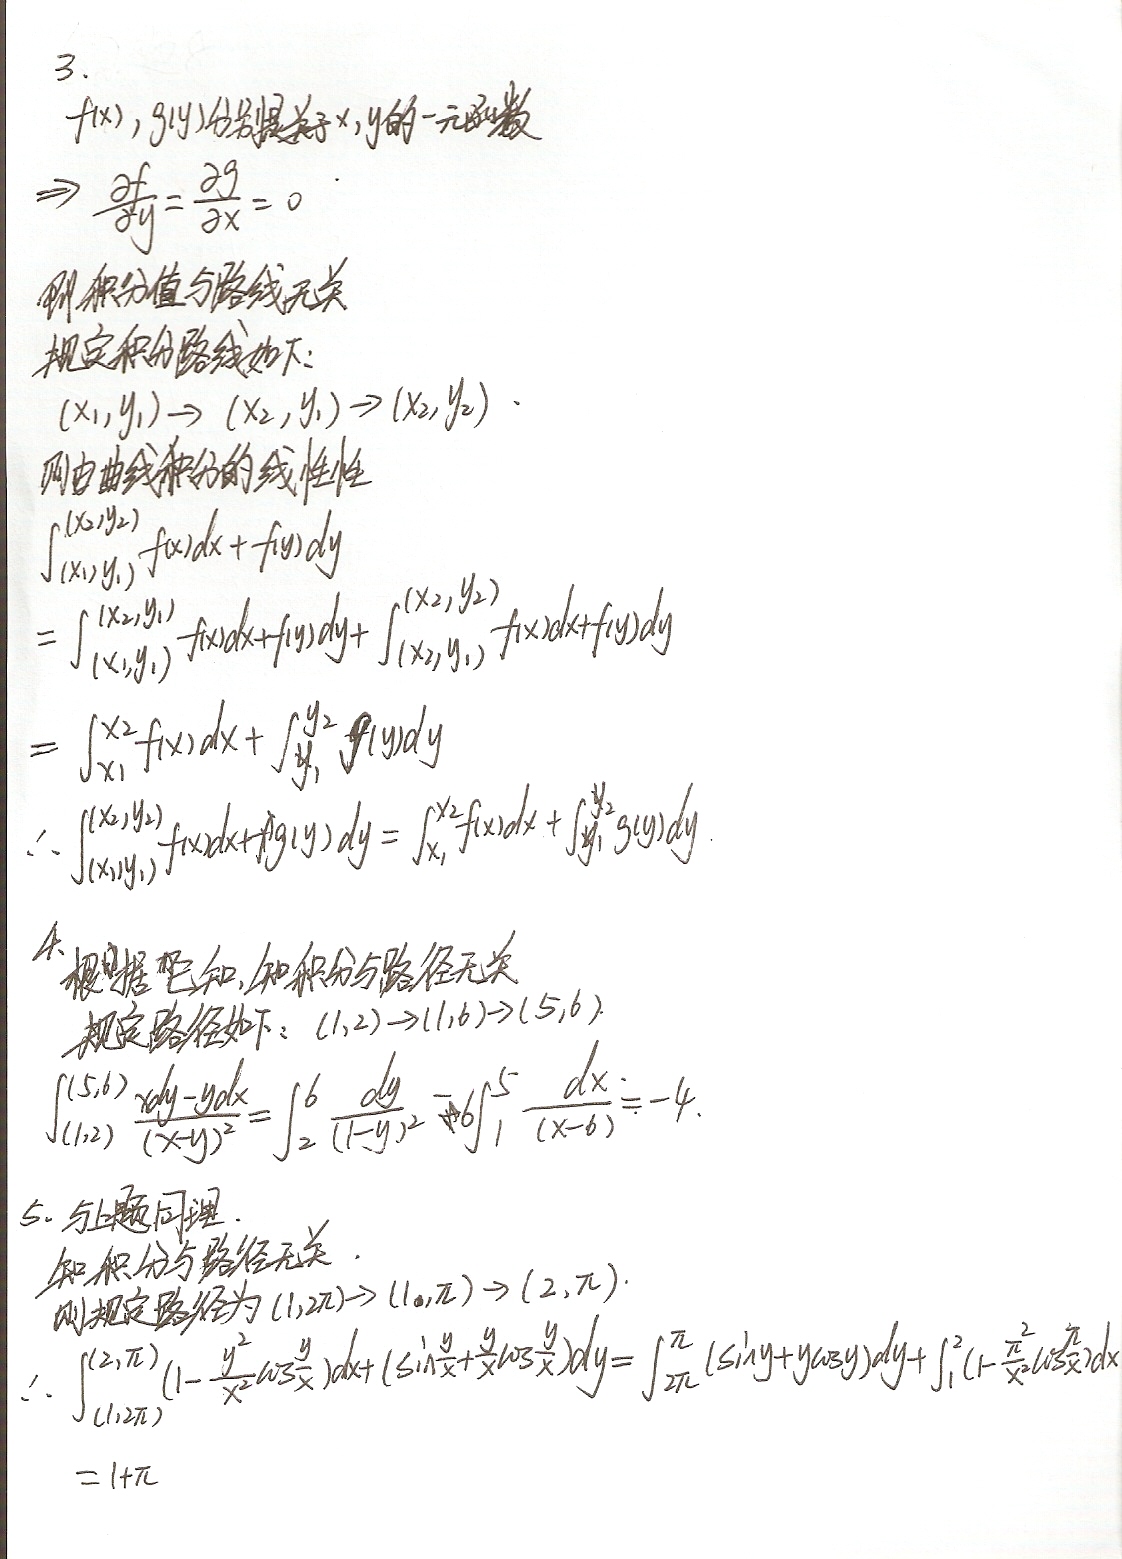 3.
f(x), g(y)分别是关于x,y的一元函数
⇒ ∂f/∂y = ∂g/∂x = 0
即积分值与路线无关
规定积分路线如下:
(x₁,y₁)→(x₂,y₁)→(x₂,y₂).
则由曲线积分的线性性
∫_(x₁,y₁)^(x₂,y₂) f(x)dx+f(y)dy
= ∫_(x₁,y₁)^(x₂,y₁) f(x)dx+f(y)dy+ ∫_(x₂,y₁)^(x₂,y₂) f(x)dx+f(y)dy
= ∫_x₁^x₂ f(x)dx+ ∫_y₁^y₂ g(y)dy
∴ ∫_(x₁,y₁)^(x₂,y₂) f(x)dx+g(y)dy = ∫_x₁^x₂ f(x)dx + ∫_y₁^y₂ g(y)dy.
4. 根据已知,知积分与路径无关
规定路径如下: (1,2)→(1,6)→(5,6).
∫_(1,2)^(5,6) (xdy-ydx)/(x-y)² = ∫_2^6 dy/(1-y)² - 6∫_1^5 dx/(x-6) = -4.
5. 与上题同理.
知积分与路径无关.
则规定路径为(1,2π)→(1,π)→(2,π).
∴ ∫_(1,2π)^(2,π) (1-y²/x² cos y/x)dx+(sin y/x + y/x cos y/x)dy = ∫_2π^π (siny+ycosy)dy+∫_1^2 (1-π²/x² cos π/x)dx
= 1+π